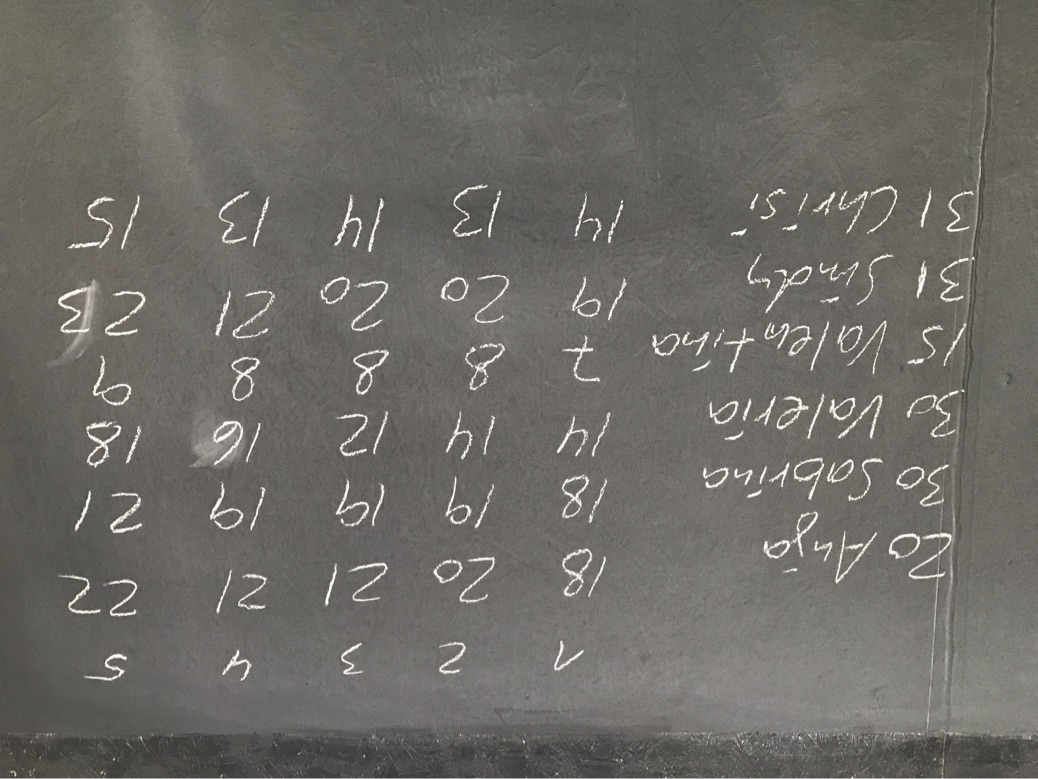 1 2 3 4 5
20 Anja 18 20 21 21 22
30 Sabrina 18 19 19 19 21
30 Valeria 14 14 12 16 18
15 Valentina 7 8 8 8 9
31 Sindy 19 20 20 21 23
31 Chrisi 14 13 14 13 15